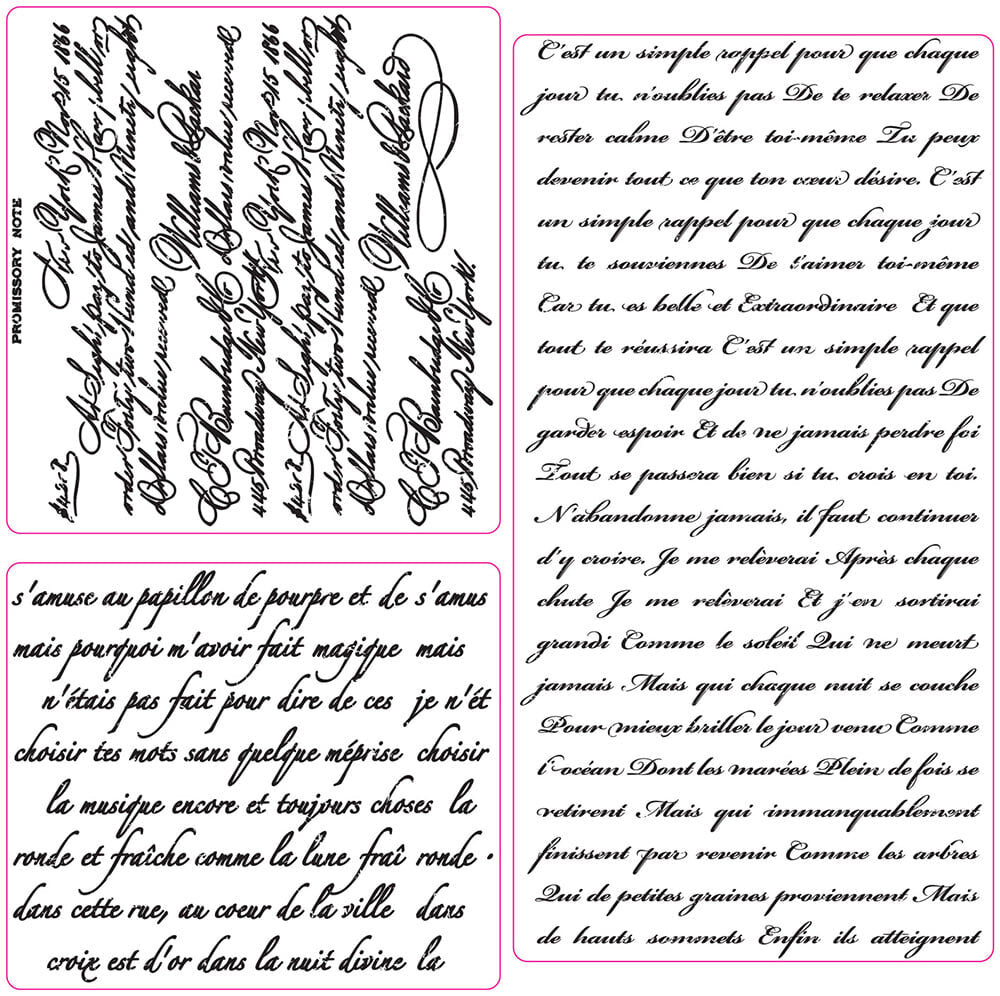 PROMISSORY NOTE
New York Nov 15 1866
At Sight pay to James
order Forty two Hundred and Ninety eight
Dollars value received
Williams & Parker
C T Dollars value received
445 Broadway New York. New York Nov 15 1866
At Sight pay to James
order Forty two Hundred and Ninety eight
Dollars value received
Williams & Parker
C T
445 Broadway New York.
s'amuse au papillon de pourpre et de s'amus
mais pourquoi m'avoir fait magique mais
n'étais pas fait pour dire de ces je n'ét
choisir tes mots sans quelque méprise choisir
la musique encore et toujours choses la
ronde et fraîche comme la lune fraî ronde •
dans cette rue, au coeur de la ville dans
croix est d'or dans la nuit divine la
C'est un simple rappel pour que chaque
jour tu n'oublies pas De te relaxer De
rester calme D'être toi-même Tu peux
devenir tout ce que ton cœur désire. C'est
un simple rappel pour que chaque jour
tu te souviennes De t'aimer toi-même
Car tu es belle et Extraordinaire Et que
tout te réussira C'est un simple rappel
pour que chaque jour tu n'oublies pas De
garder espoir Et de ne jamais perdre foi
Tout se passera bien si tu crois en toi.
N'abandonne jamais, il faut continuer
d'y croire. Je me relèverai Après chaque
chute Je me relèverai Et j'en sortirai
grandi Comme le soleil Qui ne meurt
jamais Mais qui chaque nuit se couche
Pour mieux briller le jour venu Comme
l'océan Dont les marées Plein de fois se
retirent Mais qui immanquablement
finissent par revenir Comme les arbres
Qui de petites graines proviennent Mais
de hauts sommets Enfin ils atteignent